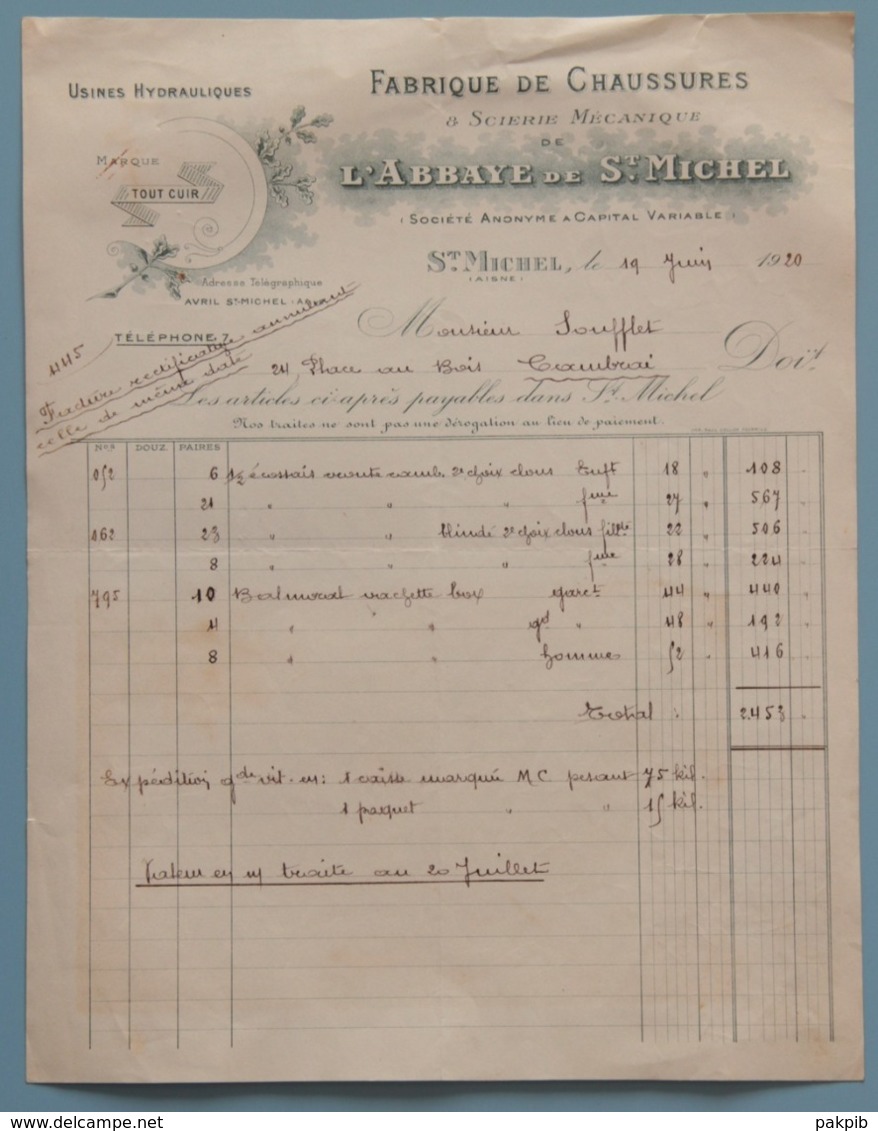 USINES HYDRAULIQUES
FABRIQUE DE CHAUSSURES
& SCIERIE MÉCANIQUE
DE
L'ABBAYE DE ST. MICHEL
(SOCIÉTÉ ANONYME A CAPITAL VARIABLE)
MARQUE
TOUT CUIR
ST. MICHEL, le 19 Juin 1920
(AISNE)
Adresse Télégraphique
AVRIL ST-MICHEL
TÉLÉPHONE. 7
445
Facture rectificative annulant
celle de même date
Monsieur Soufflet
24 Place au Bois Cambrai Doit
Les articles ci-après payables dans St. Michel
Nos traites ne sont pas une dérogation au lieu de paiement.
Nos DOUZ. PAIRES
052 6 1/2 écossais veaute camb. 2e choix clous Enft 18 " 108 "
21 " " " fme 27 " 567 "
162 23 " " blindé 2e choix clous fillte 22 " 506 "
8 " " " fme 28 " 224 "
795 10 Balmoral vachette box garct 44 " 440 "
4 " " gd " 48 " 192 "
8 " " hommes 52 " 416 "
Total 2.453 "
Expédition gde vit. en: 1 caisse marquée M C pesant 75 kil.
1 paquet " " 15 kil.
Valeur en m traite au 20 Juillet
www.delcampe.net
pakpib